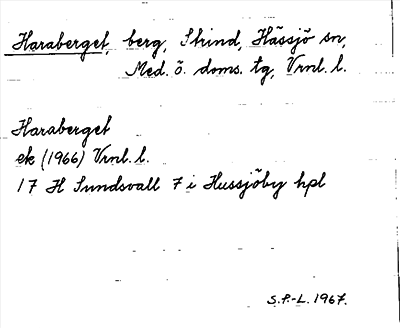 Haraberget, berg, Strind, Hässjö sn,
Med. ö. doms. tg, Vrnl. l.
Haraberget
ek (1966) Vrnl. l.
17 H Sundsvall 7 i Hussjöby hpl
S.P.-L. 1967.